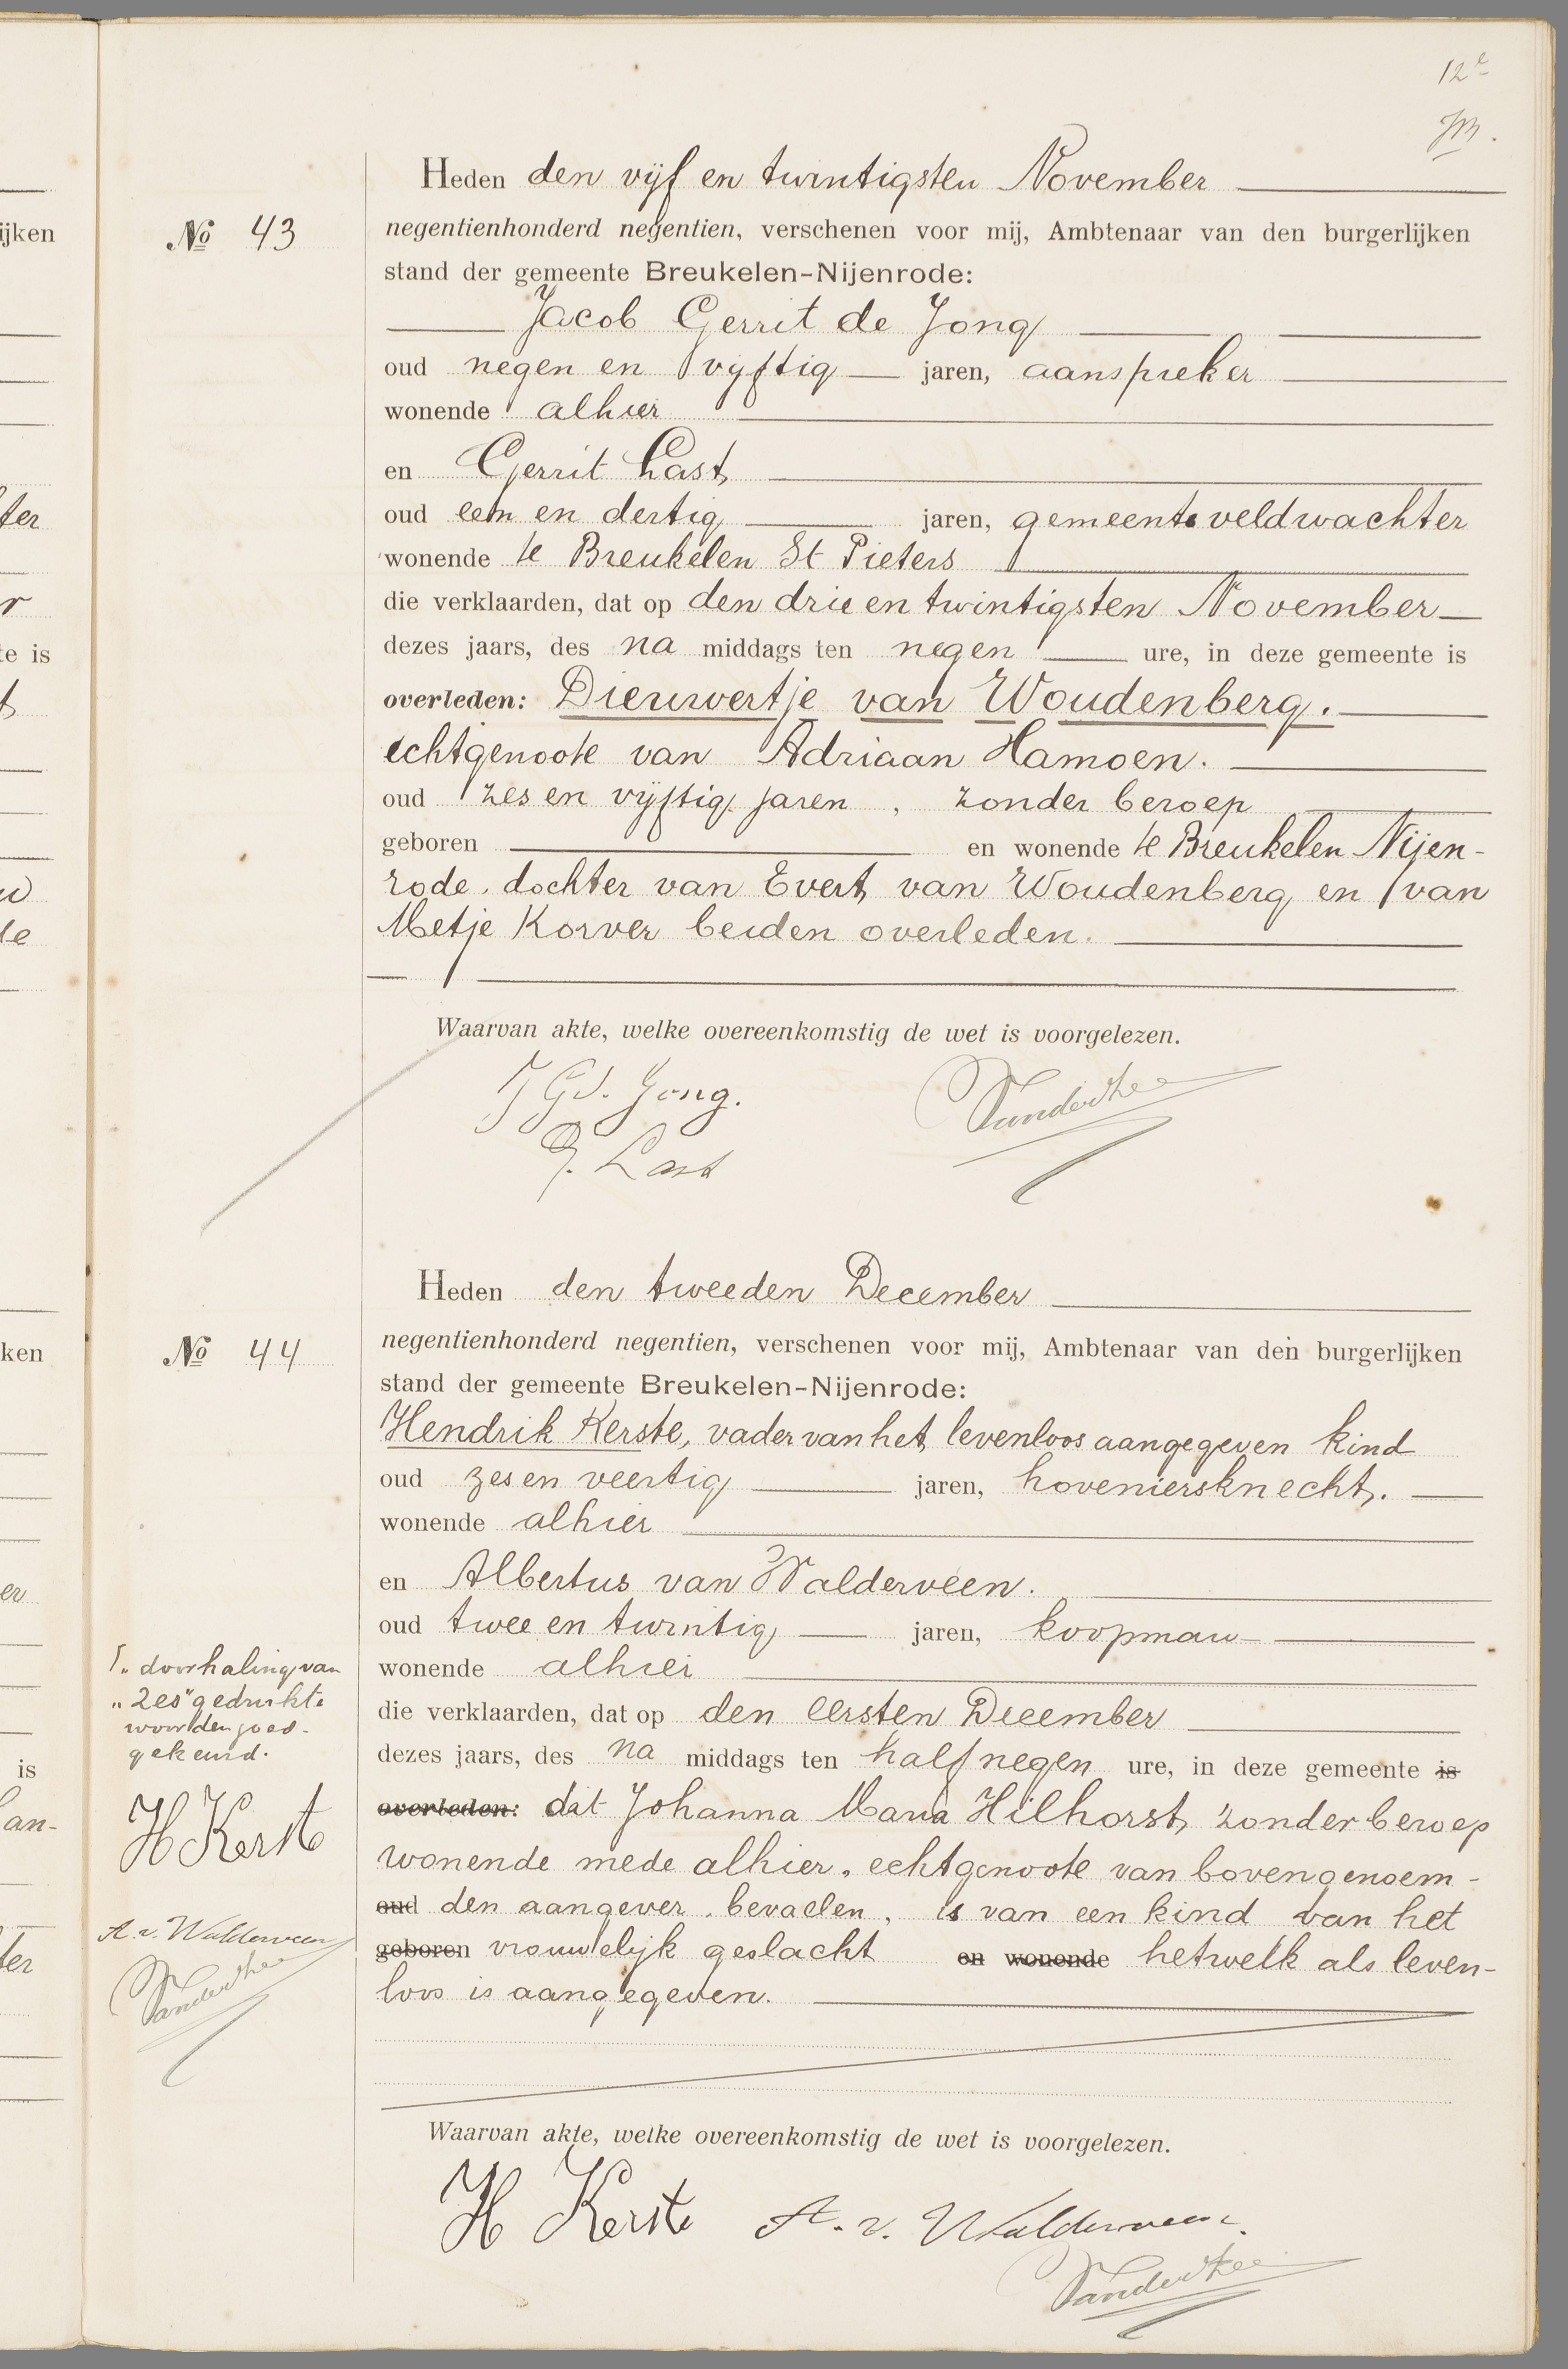 12e
Heden den vijf en twintigsten November
No 43
negentienhonderd negentien, verschenen voor mij, Ambtenaar van den burgerlijken
stand der gemeente Breukelen-Nijenrode:
Jacob Gerrit de Jong
oud negen en vijftig jaren, aanspreker
wonende alhier
en Gerrit Last
oud een en dertig jaren, gemeente veldwachter
wonende te Breukelen St Pieters
die verklaarden, dat op den drie en twintigsten November
dezes jaars, des na middags ten negen ure, in deze gemeente is
overleden: Dieuwertje van Woudenberg.
echtgenoote van Adriaan Hamoen.
oud zes en vijftig jaren, zonder beroep
geboren en wonende te Breukelen Nijen-
rode, dochter van Evert van Woudenberg en van
Metje Korver beiden overleden.
Waarvan akte, welke overeenkomstig de wet is voorgelezen.
JGd. Jong.
G. Last
Heden den tweeden December
No 44
negentienhonderd negentien, verschenen voor mij, Ambtenaar van den burgerlijken
stand der gemeente Breukelen-Nijenrode:
Hendrik Kerste, vader van het levenloos aangegeven kind
oud zes en veertig jaren, hoveniersknecht.
wonende alhier
en Albertus van Walderveen.
oud twee en twintig jaren, koopman
wonende alhier
die verklaarden, dat op den eersten December
dezes jaars, des na middags ten half negen ure, in deze gemeente is
overleden: dat Johanna Maria Hilhorst, zonder beroep
wonende mede alhier, echtgenoote van bovengenoem-
oud den aangever, bevallen, is van een kind van het
geboren vrouwelijk geslacht en wonende hetwelk als leven-
loos is aangegeven.
doorhaling van
"zes" gedrukte
woorden goed-
gekeurd.
H Kerste
A. v. Walderveen
Waarvan akte, welke overeenkomstig de wet is voorgelezen.
H Kerste A. v. Walderveen.